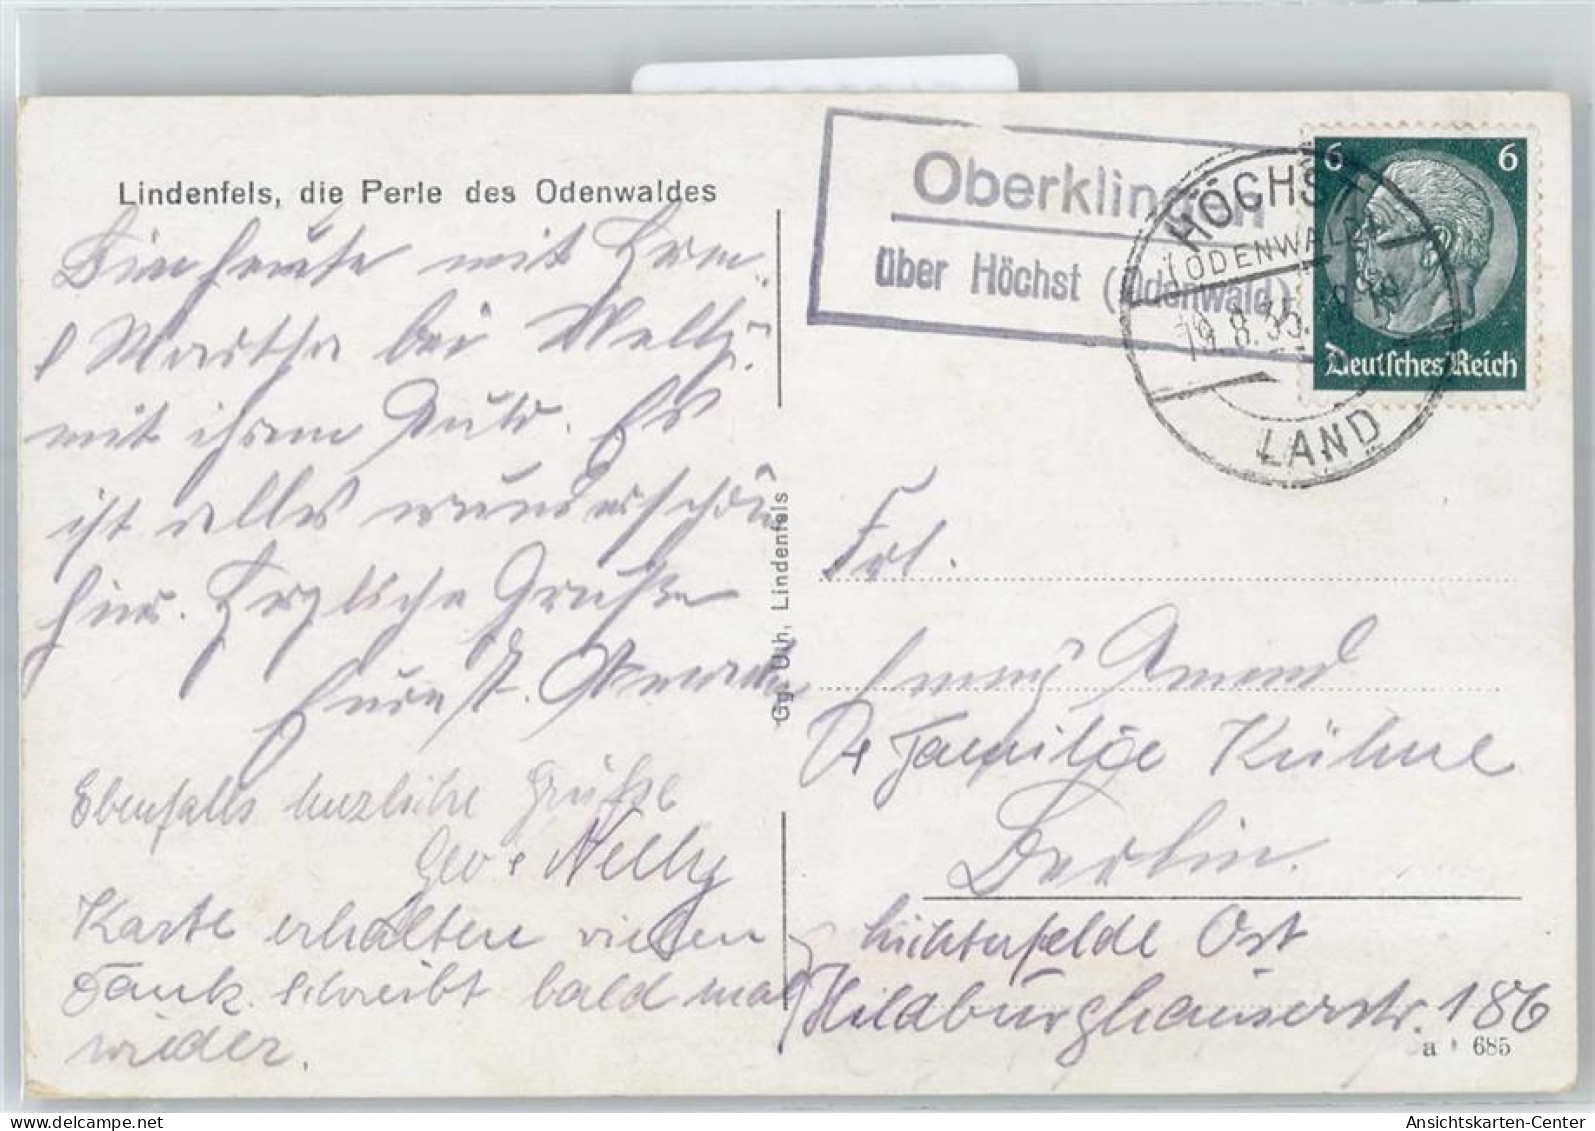 Lindenfels, die Perle des Odenwaldes
Bin heute mit Herm.
& Martha bei Nelly
mit ihrem Auto. Es
ist alles wunderschön
hier. Herzliche Grüße
Ebenfalls herzliche Grüße
Geo & Nelly
Karte erhalten vielen
Dank. Schreibt bald mal
wieder.
Gg. Uth, Lindenfels
Oberklingen
über Höchst (Odenwald)
HÖCHST
(ODENWALD)
19.8.35
LAND
6 6
Deutsches Reich
Frl.
Amend
Familie Kühne
Berlin.
Lichterfelde Ost
Hildburghauserstr. 186
a 685
Ansichtskarten-Center